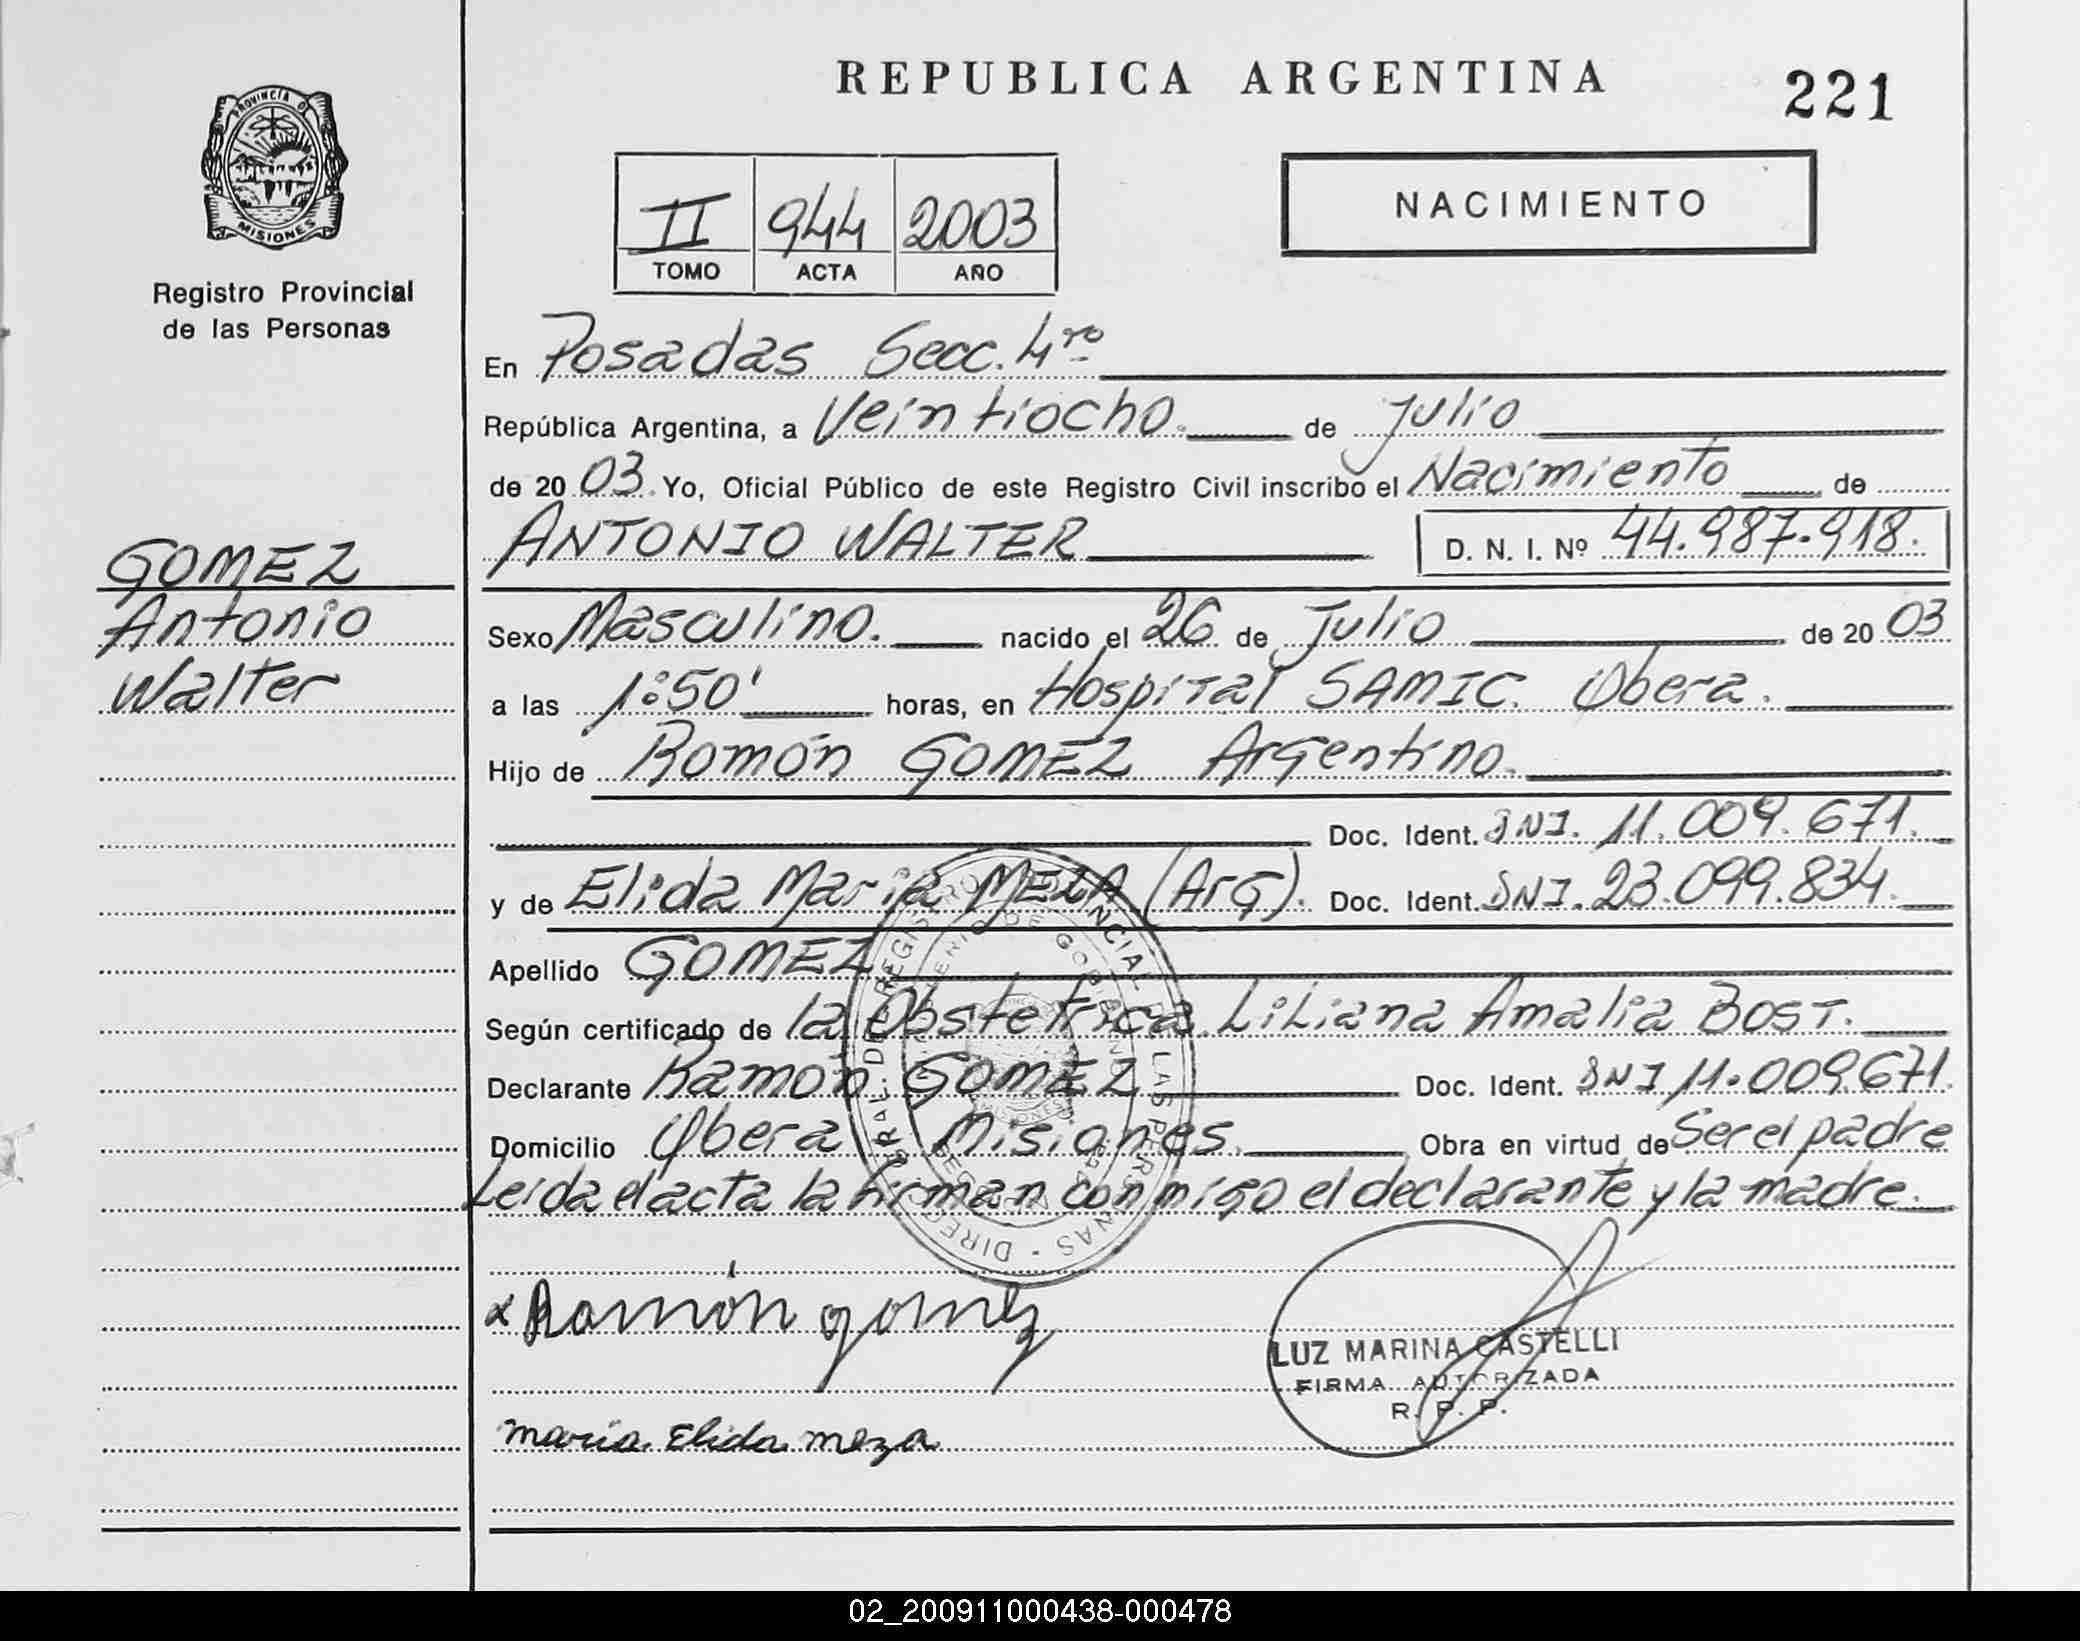 REPUBLICA ARGENTINA
221
PROVINCIA DE
MISIONES
Registro Provincial
de las Personas
II 944 2003
TOMO ACTA AÑO
NACIMIENTO
En Posadas Secc. 4ro
República Argentina, a Veintiocho. de Julio
de 20 03. Yo, Oficial Público de este Registro Civil inscribo el Nacimiento de
ANTONIO WALTER D. N. I. Nº 44.987.918.
GOMEZ
Antonio
Walter
Sexo Masculino. nacido el 26 de Julio de 20 03
a las 1:50' horas, en Hospital SAMIC. Obera.
Hijo de Romón GOMEZ Argentino.
Doc. Ident. DNI. 11.009.671.
y de Elida Maria MEZA (Arg). Doc. Ident. DNI. 23.099.834.
Apellido GOMEZ
Según certificado de la Obstetrica Liliana Amalia BOST.
Declarante Ramón GOMEZ Doc. Ident. DNI 11.009.671
Domicilio Obera Misiones. Obra en virtud de Ser el padre
Leida el acta la firman conmigo el declarante y la madre.
Ramón gomez
LUZ MARINA CASTELLI
FIRMA AUTORIZADA
R. P. P.
maria Elida meza
02_200911000438-000478